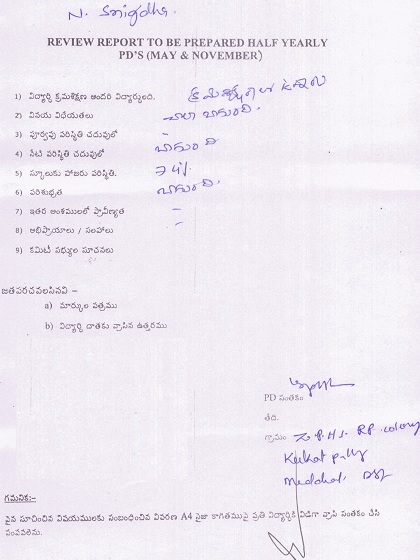 N. Snigdha.
REVIEW REPORT TO BE PREPARED HALF YEARLY
PD'S (MAY & NOVEMBER)
1) విద్యార్థి క్రమశిక్షణ అందరి విద్యార్థులది. క్రమశిక్షణ గల
2) వినయ విధేయతలు చాలా బాగుంది.
3) పూర్వపు పరిస్థితి చదువులో –
4) నేటి పరిస్థితి చదువులో బాగుంది
5) స్కూలుకు హాజరు పరిస్థితి. 74%
6) పరిశుభ్రత బాగుంది.
7) ఇతర అంశములలో ప్రావీణ్యత –
8) అభిప్రాయాలు / సలహాలు –
9) కమిటీ సభ్యుల సూచనలు
జతపరచవలసినవి –
a) మార్కుల పత్రము
b) విద్యార్థి దాతకు వ్రాసిన ఉత్తరము
PD సంతకం
తేది.
గ్రామం Z.P.H.S. RP. colony
Kukat pally
Medchal, Dst
గమనిక:-
పైన సూచించిన విషయములకు సంబంధించిన వివరణ A4 సైజు కాగితముపై ప్రతి విద్యార్థికి విడిగా వ్రాసి సంతకం చేసి
పంపవలెను.